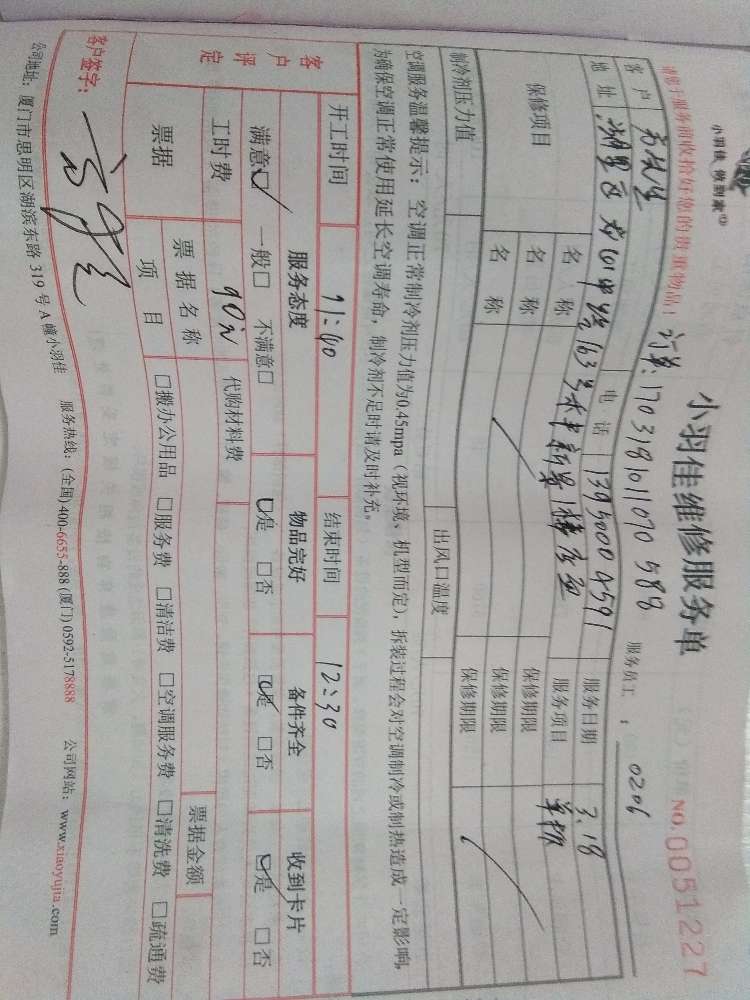 小羽佳 做到家
小羽佳维修服务单
NO.0051227
请您于服务前收拾好您的贵重物品!
订单:170319101107058 8
服务员工: 0206
客户
电话 13950004591
服务日期 3.18
地址 湖里区
163号
服务项目
保修项目
名称
保修期限
名称
保修期限
名称
保修期限
制冷剂压力值
出风口温度
空调服务温馨提示:空调正常制冷剂压力值为0.45mpa(视环境、机型而定),拆装过程会对空调制冷或制热造成一定影响,
为确保空调正常使用延长空调寿命,制冷剂不足时请及时补充。
开工时间 11:40 结束时间 12:30
客户评定
服务态度 物品完好 备件齐全 收到卡片
满意☑ 一般□ 不满意□ ☑是 □否 ☑是 □否 ☑是 □否
工时费 90元 代购材料费
票据
票据名称 票据金额
项目 □搬办公用品 □服务费 □清洁费 □空调服务费 □清洗费 □疏通费
客户签字:
公司地址:厦门市思明区湖滨东路319号A幢小羽佳 服务热线:(全国)400-6655-888(厦门)0592-5178888 公司网站:www.xiaoyujia.com